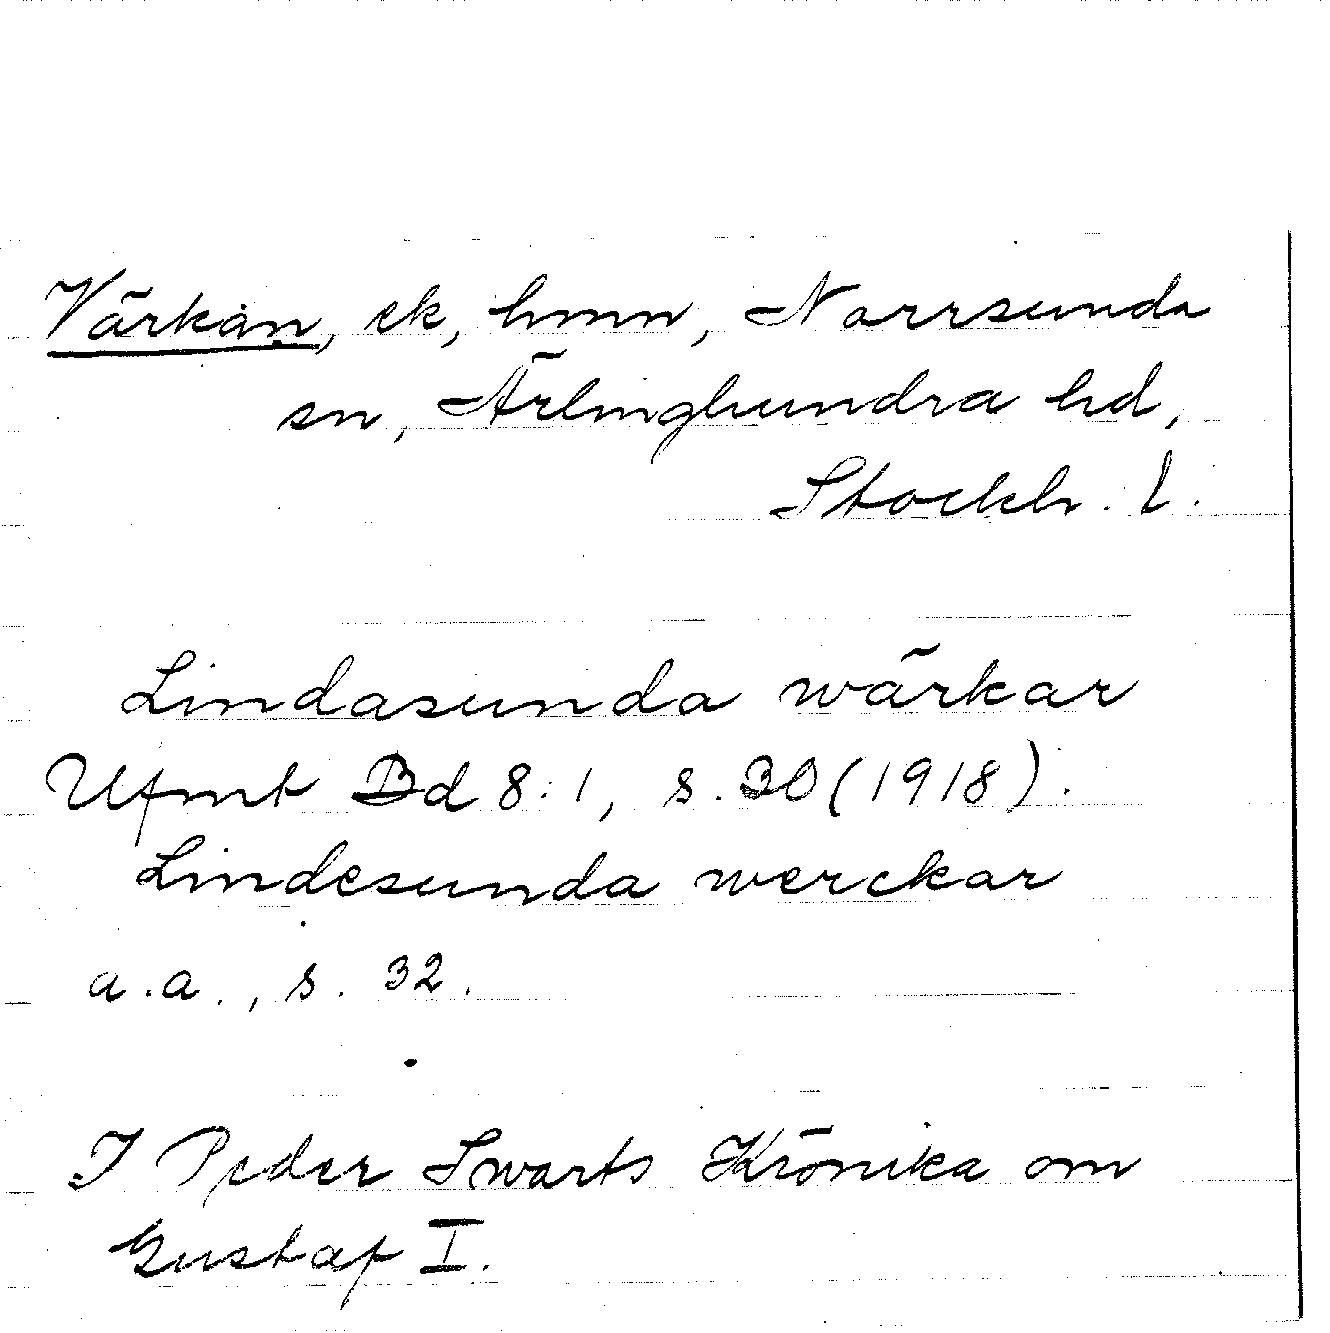 Värkan, ek, hmn, Norrsunda
sn, Ärlinghundra hd,
Stockh. l.
Lindasunda wärkar
Ufmt Bd 8:1, s. 30 (1918).
Lindesunda werckar
a.a., s. 32.
I Peder Swarts Krönika om
Gustaf I.